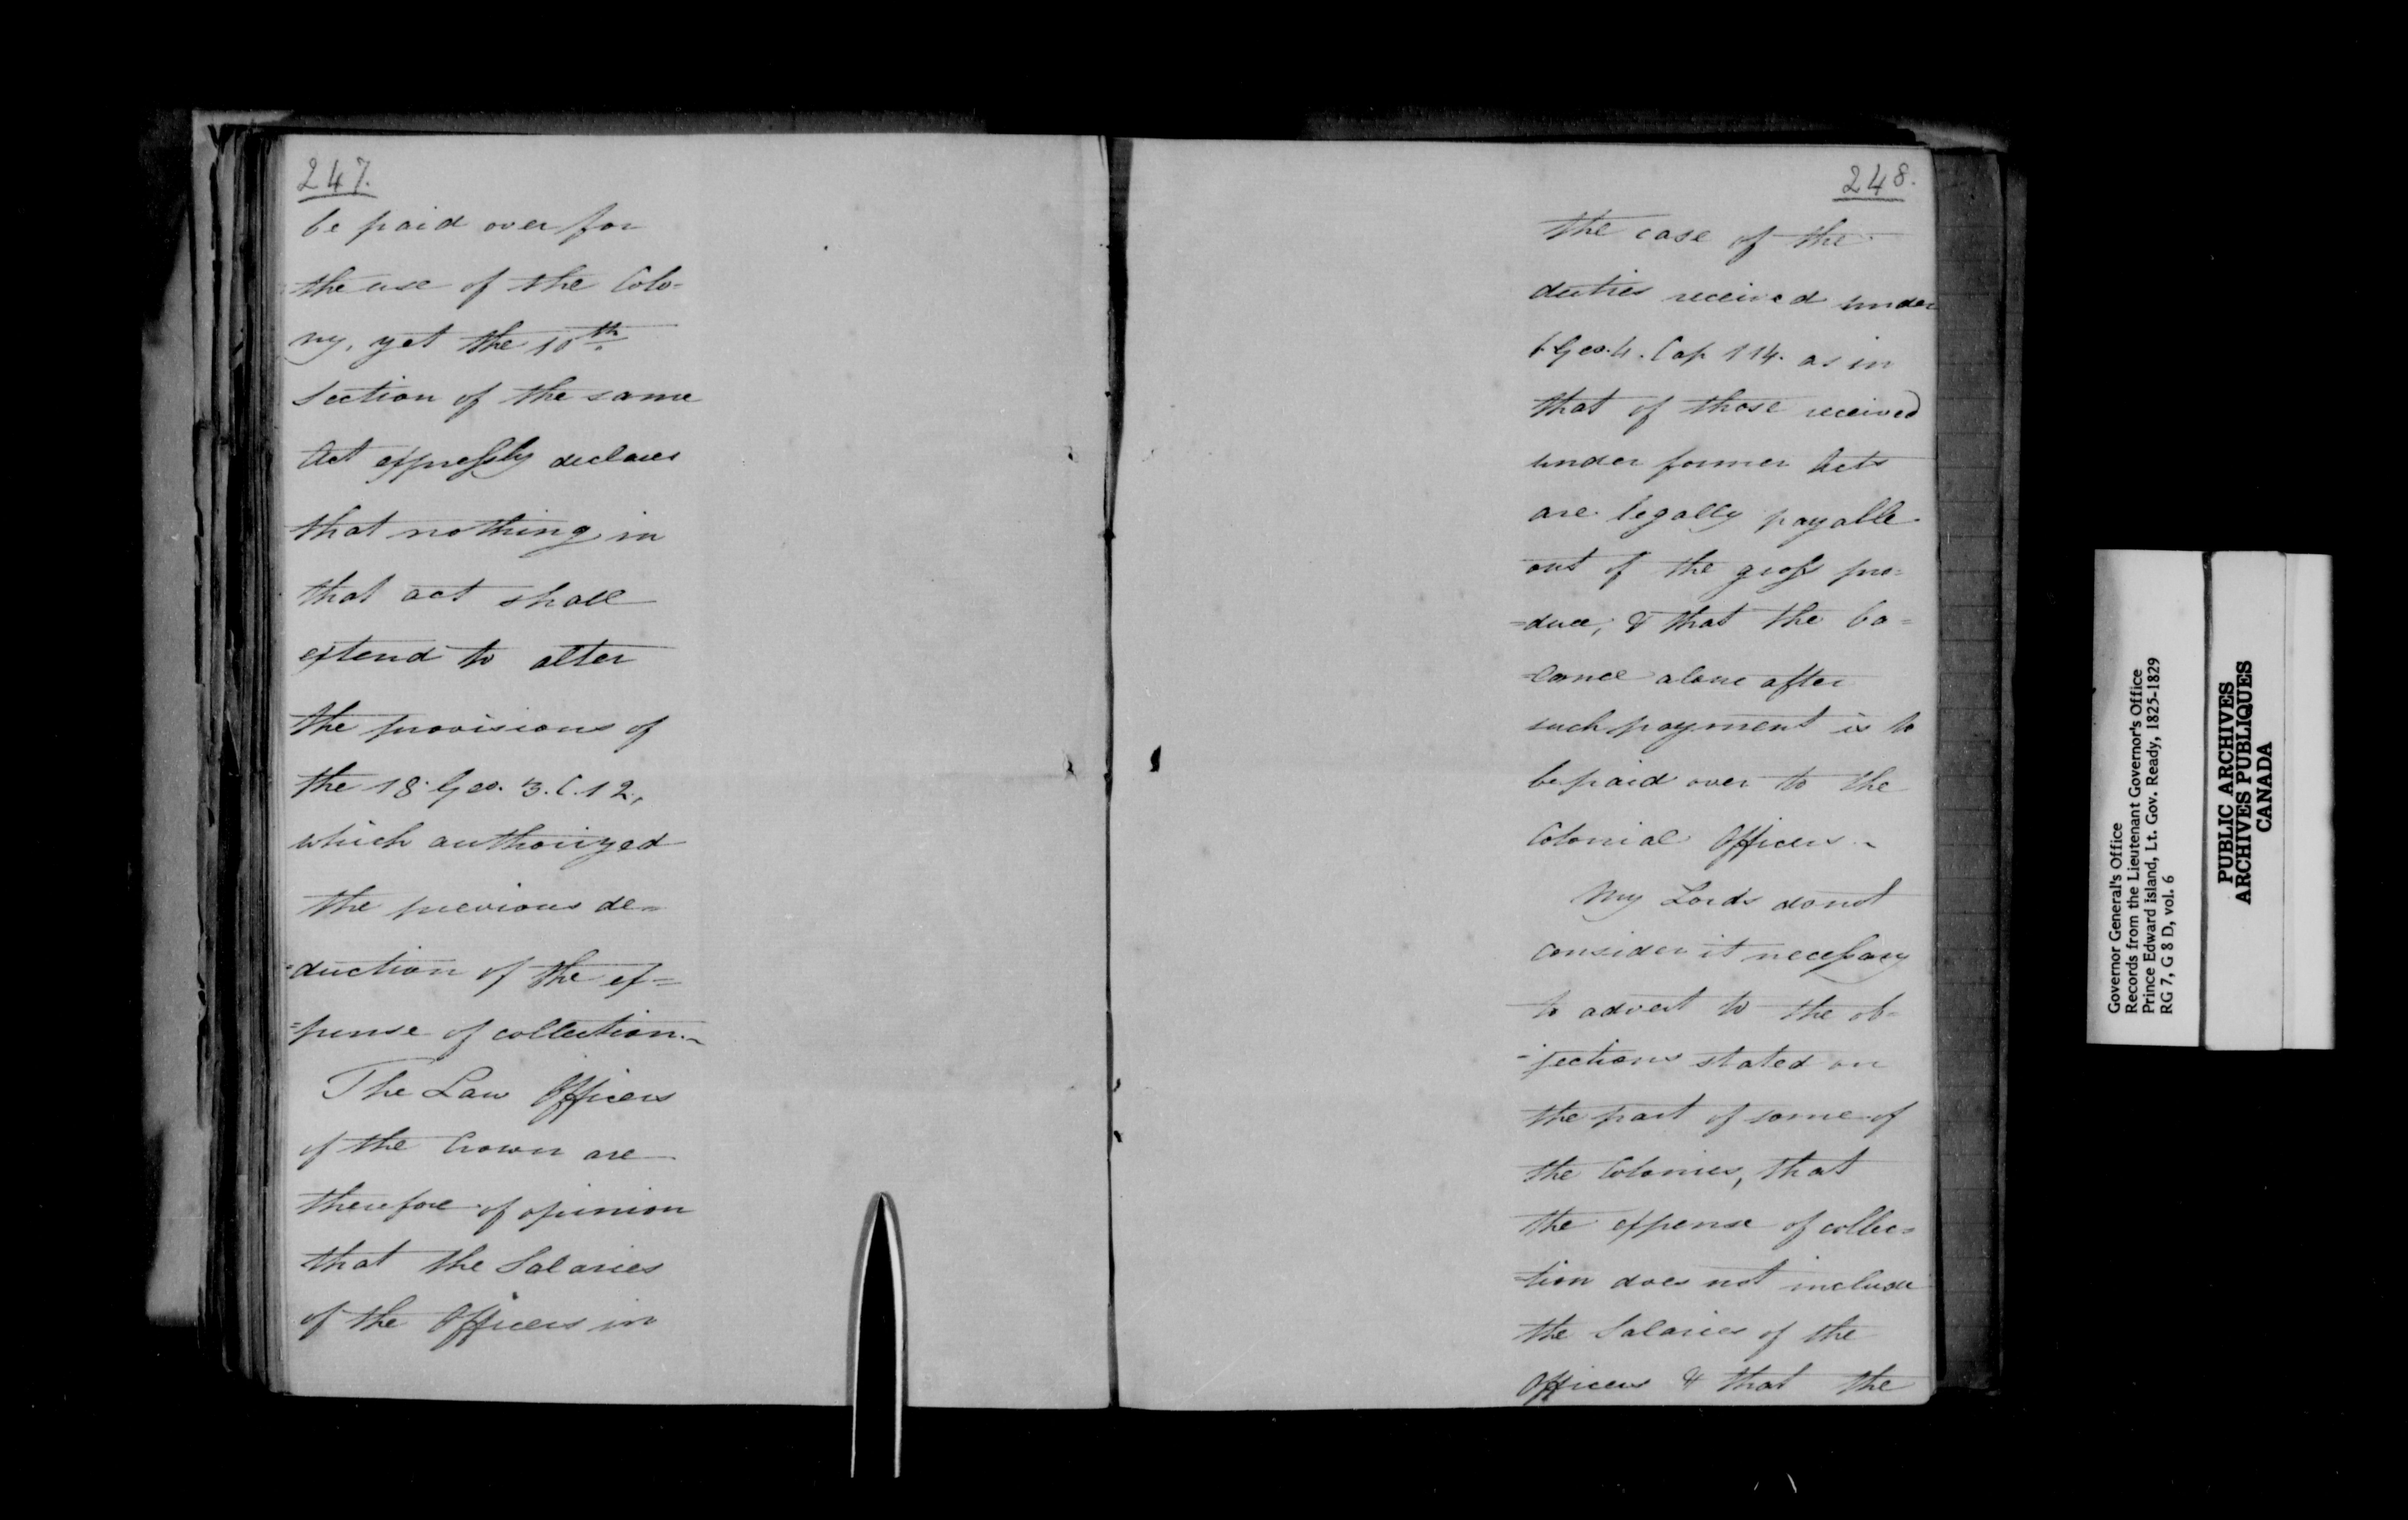 247.
be paid over for
the use of the Colo-
ny, yet the 10th
Section of the same
Act expressly declares
that nothing in
that act shall
extend to alter
the provisions of
the 18. Geo. 3. C. 12,
which authorized
the previous de-
=duction of the ex=
=pense of collection.~
The Law Officers
of the Crown are
therefore of opinion
that the Salaries
of the Officers in
248.
the case of the
duties received under
6 Geo. 4. Cap 114. as in
that of those received
under former Acts
are legally payable
out of the gross pro=
=duce, & that the ba=
=lance alone after
such payment is to
be paid over to the
Colonial Officers.~
My Lords do not
consider it necessary
to advert to the ob=
=jections stated on
the part of some of
the Colonies, that
the expense of collec=
=tion does not include
the Salaries of the
Officers & that the
Governor General's Office
Records from the Lieutenant Governor's Office
Prince Edward Island, Lt. Gov. Ready, 1825-1829
RG 7, G 8 D, vol. 6
PUBLIC ARCHIVES
ARCHIVES PUBLIQUES
CANADA